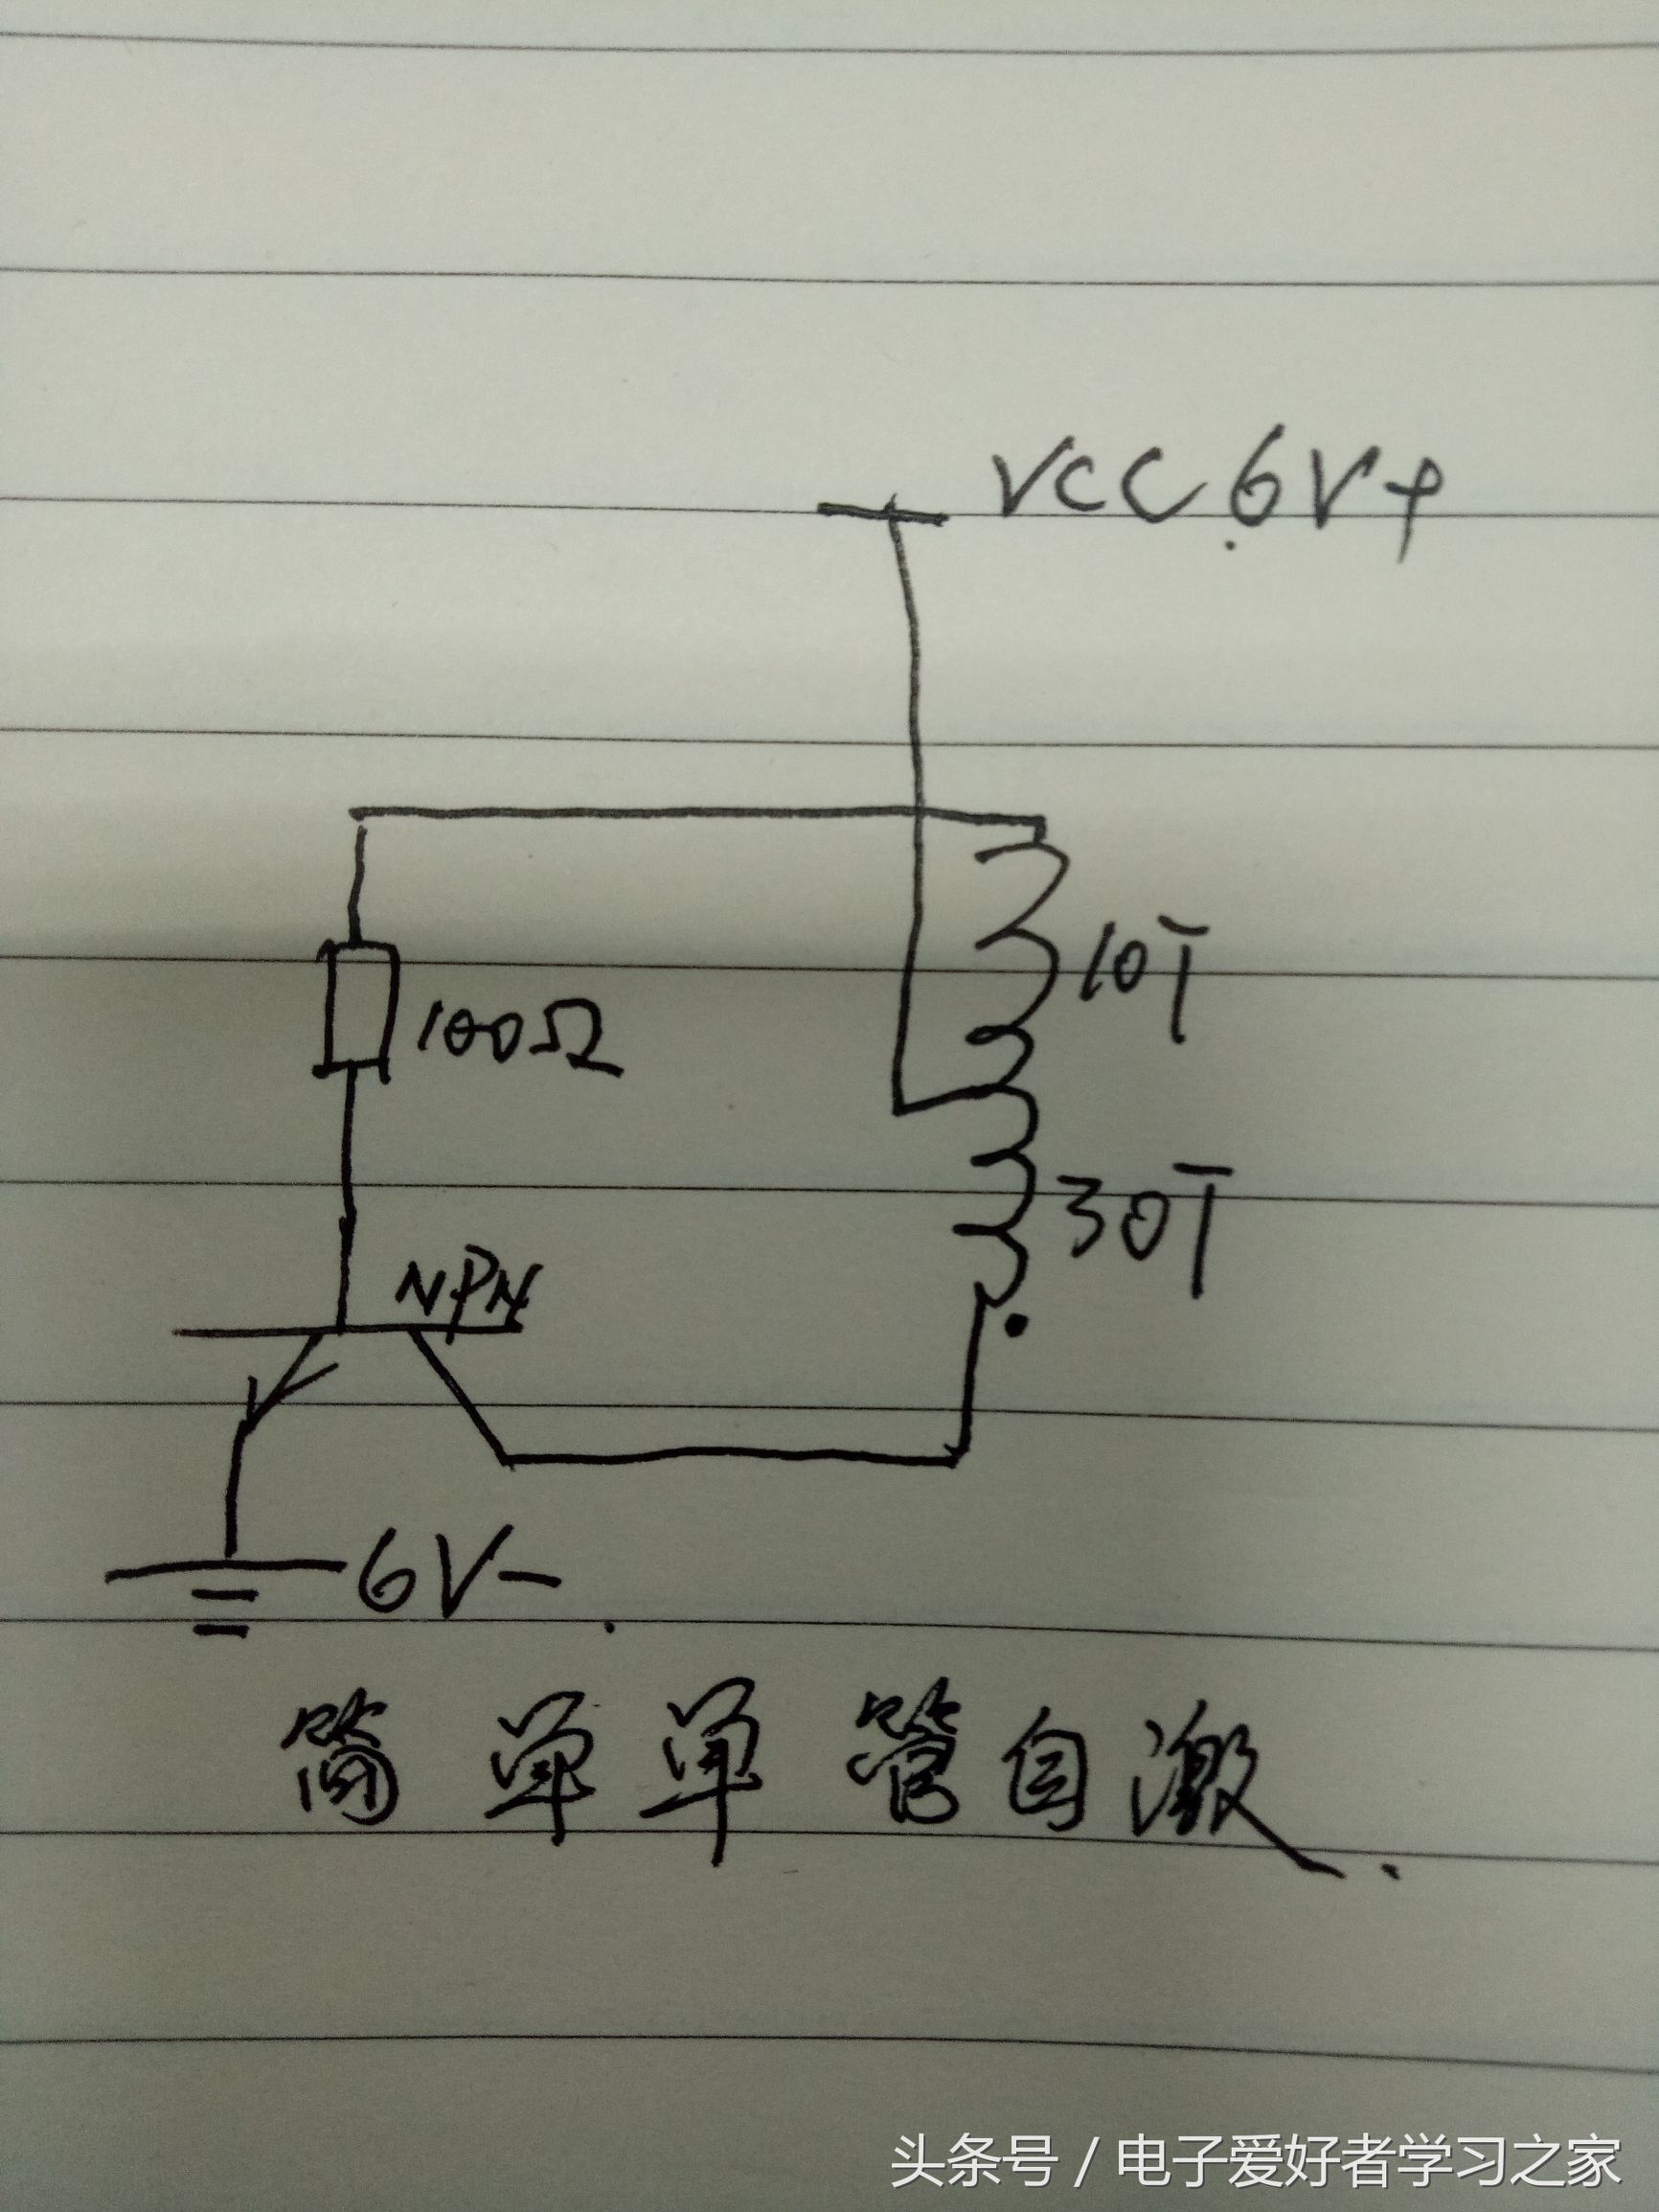 VCC 6V+
10T
100Ω
30T
NPN
6V-
简单单管自激.
头条号 / 电子爱好者学习之家